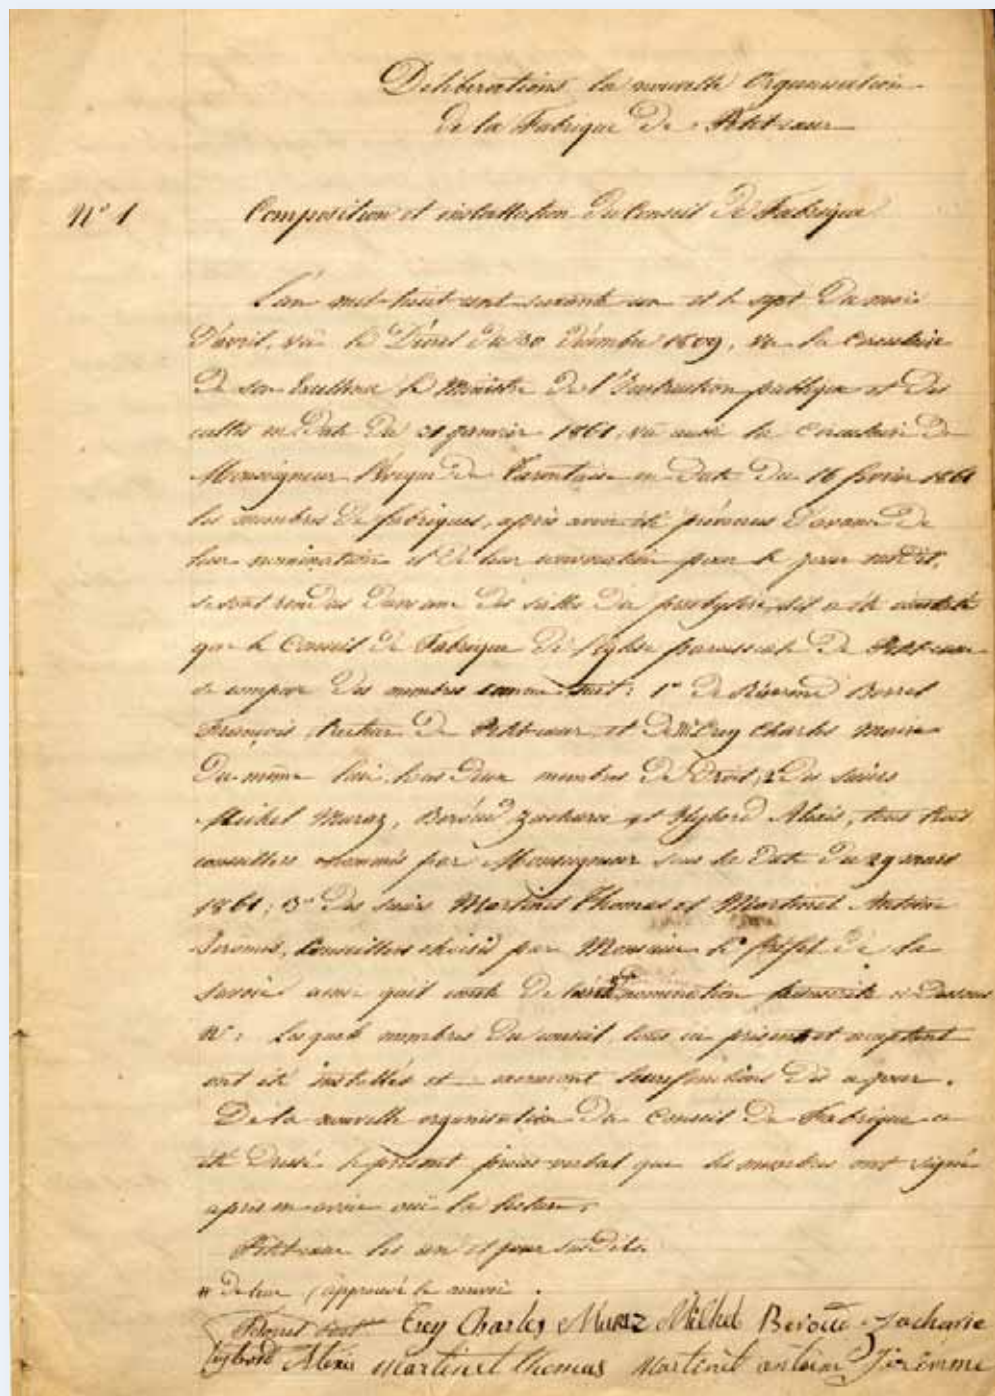 Délibérations la nouvelle Organisation
de la Fabrique de Petit-cœur
N° 1
Composition et installation du Conseil de Fabrique
L'an mil-huit-cent-soixante un et le sept du mois
d'avril, vu le Décret du 30 décembre 1809, vu la circulaire
de son Excellence le Ministre de l'Instruction publique et des
cultes en date du 31 janvier 1861, vu aussi la circulaire de
Monseigneur l'Evêque de Tarentaise en date du 16 février 1861
les membres de fabriques, après avoir été prévenus d'avance de
leur nomination et de leur convocation pour le jour susdit,
se sont rendus dans une des salles du presbytère, et il a été constaté
que le Conseil de Fabrique de l'église paroissiale de Petit-cœur
se compose des membres comme suit: 1° de Révérend Borrel
François, Recteur de Petit-cœur, et de Mr Crey Charles Maire
du même lieu, tous deux membres de droit; 2° des sieurs
Michel Muraz, Béroud Zacharie et Glybord Alexis, tous trois
conseillers nommés par Monseigneur sous la date du 29 mars
1861; 3° des sieurs Martinet Thomas et Martinet Antoine
Jérome, Conseillers choisis par Monsieur le Préfet de la
Savoie ainsi qu'il conste de nomination ci-dessous
N°: Lesquels membres du conseil tous ici présents et acceptant
ont été installés et exerceront leurs fonctions dès ce jour.
De la nouvelle organisation du Conseil de Fabrique a
été dressé le présent procès-verbal que les membres ont signé
après en avoir ouï la lecture.
Petit-cœur les an et jour susdits.
de leur (approuvé le renvoi.
Borrel Rect Crey Charles Muraz Michel Béroud Zacharie
Glybord Alexis Martinet thomas Martinet antoine Jéromme